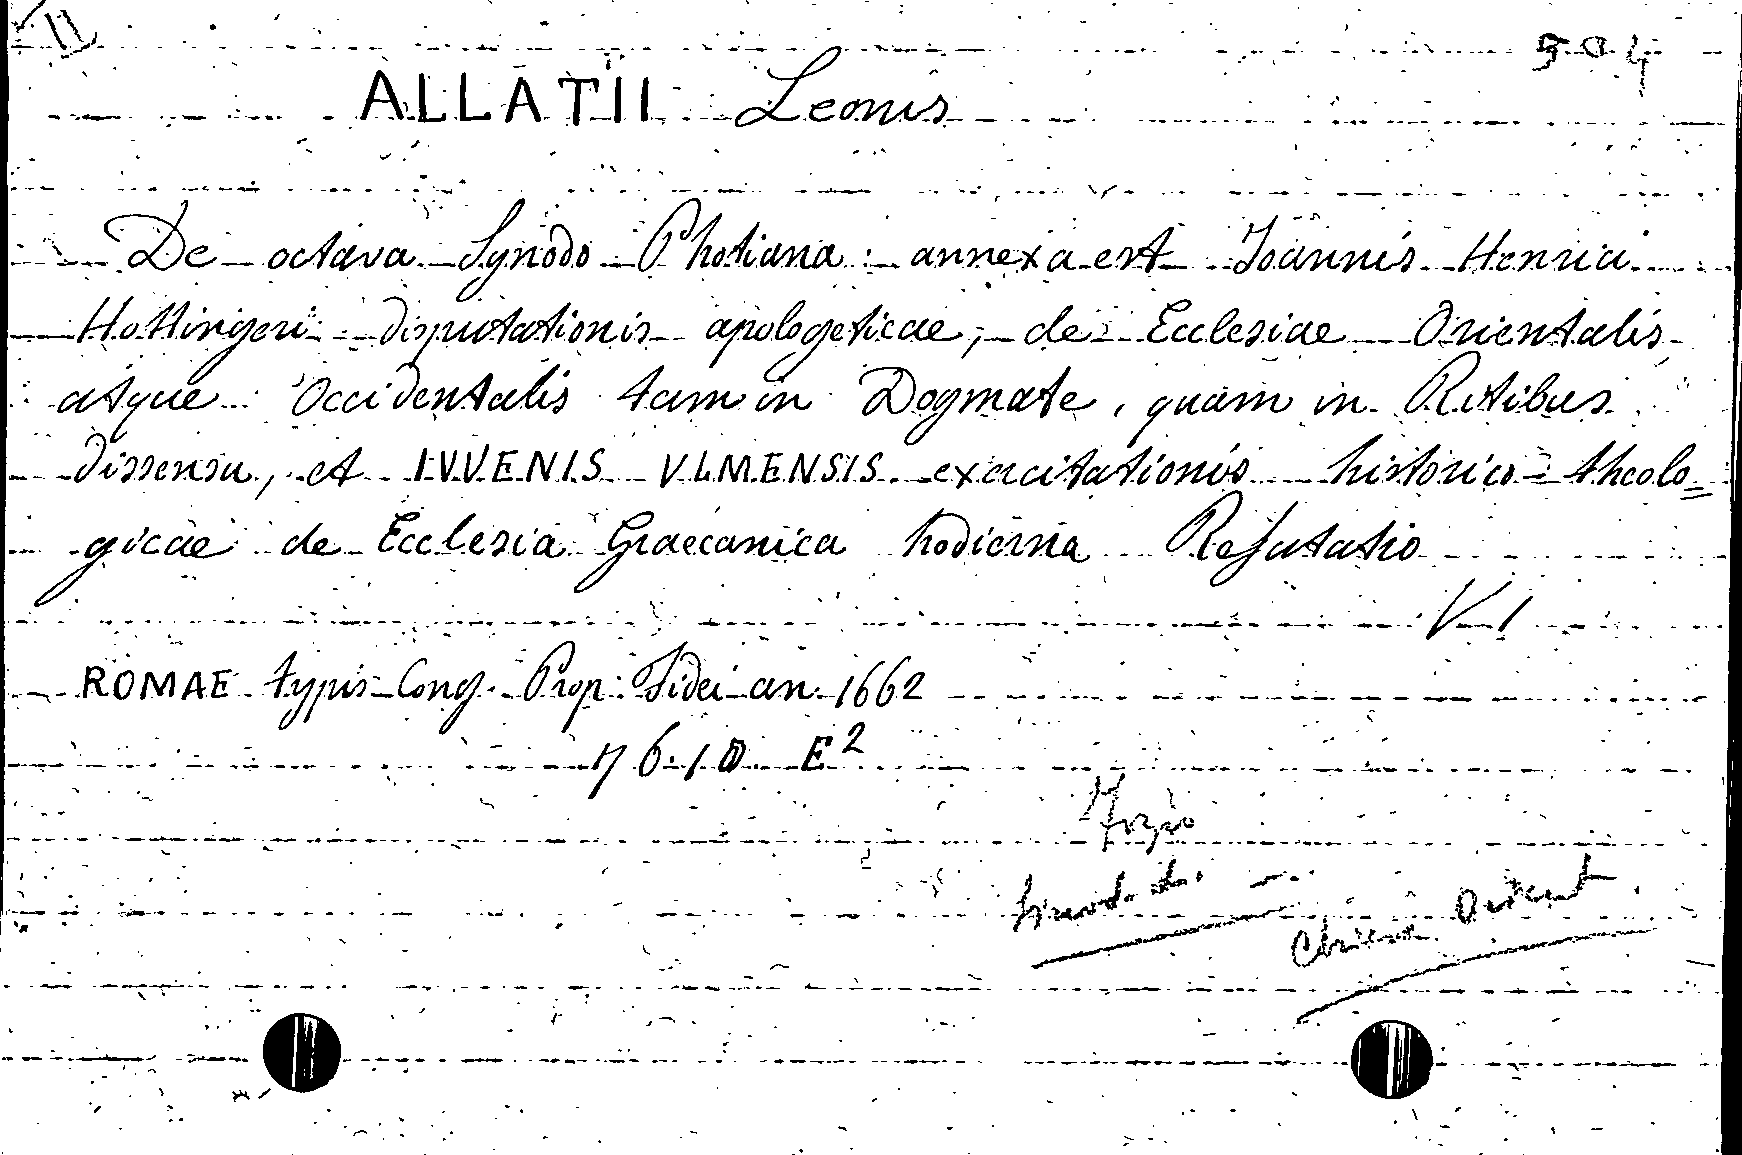 11
504
ALLATII Leonis
De octava Synodo Photiana: annexa est Ioannis Henrici
Hottingeri disputationis apologeticae, de Ecclesiae Orientalis
atque Occidentalis tam in Dogmate, quam in Ritibus
dissensu, et IVVENIS VLMENSIS exercitationis historico-theolo=
gicae de Ecclesia Graecanica hodierna Refutatio
V. 1
ROMAE typis Cong. Prop. Fidei an. 1662
76.10. E²
Fozio
Orient.